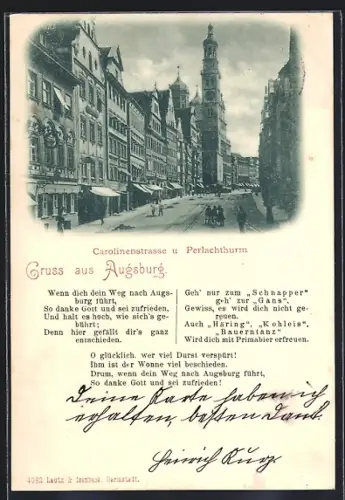 Carolinenstrasse u Perlachthurm
Gruss aus Augsburg.
Wenn dich dein Weg nach Augs-
burg führt,
So danke Gott und sei zufrieden,
Und halt es hoch, wie sich's ge-
bührt;
Denn hier gefällt dir's ganz
entschieden.
Geh' nur zum „Schnapper"
geh' zur „Gans",
Gewiss, es wird dich nicht ge-
reuen.
Auch „Häring", „Kohleis",
„Bauerntanz"
Wird dich mit Primabier erfreuen.
O glücklich, wer viel Durst verspürt!
Ihm ist der Wonne viel beschieden.
Drum, wenn dein Weg nach Augsburg führt,
So danke Gott und sei zufrieden!
Deine Karte haben ich
erhalten, besten Dank.
Heinrich Krug.
4093 Lautz & Isenbeck, Darmstadt.